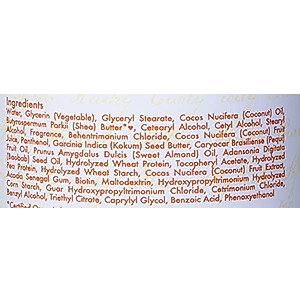 Ingredients
Water, Glycerin (Vegetable), Glyceryl Stearate, Cocos Nucifera (Coconut) Oil,
Butyrospermum Parkii (Shea) Butter*♥, Cetearyl Alcohol, Cetyl Alcohol, Stearyl
Alcohol, Fragrance, Behentrimonium Chloride, Cocos Nucifera (Coconut) Fruit
Juice, Panthenol, Garcinia Indica (Kokum) Seed Butter, Caryocar Brasiliense (Pequi)
Fruit Oil, Prunus Amygdalus Dulcis (Sweet Almond) Oil, Adansonia Digitata
(Baobab) Seed Oil, Hydrolyzed Wheat Protein, Tocopheryl Acetate, Hydrolyzed
Pea Protein, Hydrolyzed Wheat Starch, Cocos Nucifera (Coconut) Fruit Extract,
Acacia Senegal Gum, Biotin, Maltodextrin, Hydroxypropyltrimonium Hydrolyzed
Corn Starch, Guar Hydroxypropyltrimonium Chloride, Cetrimonium Chloride,
Benzyl Alcohol, Triethyl Citrate, Caprylyl Glycol, Benzoic Acid, Phenoxyethanol
*Certified